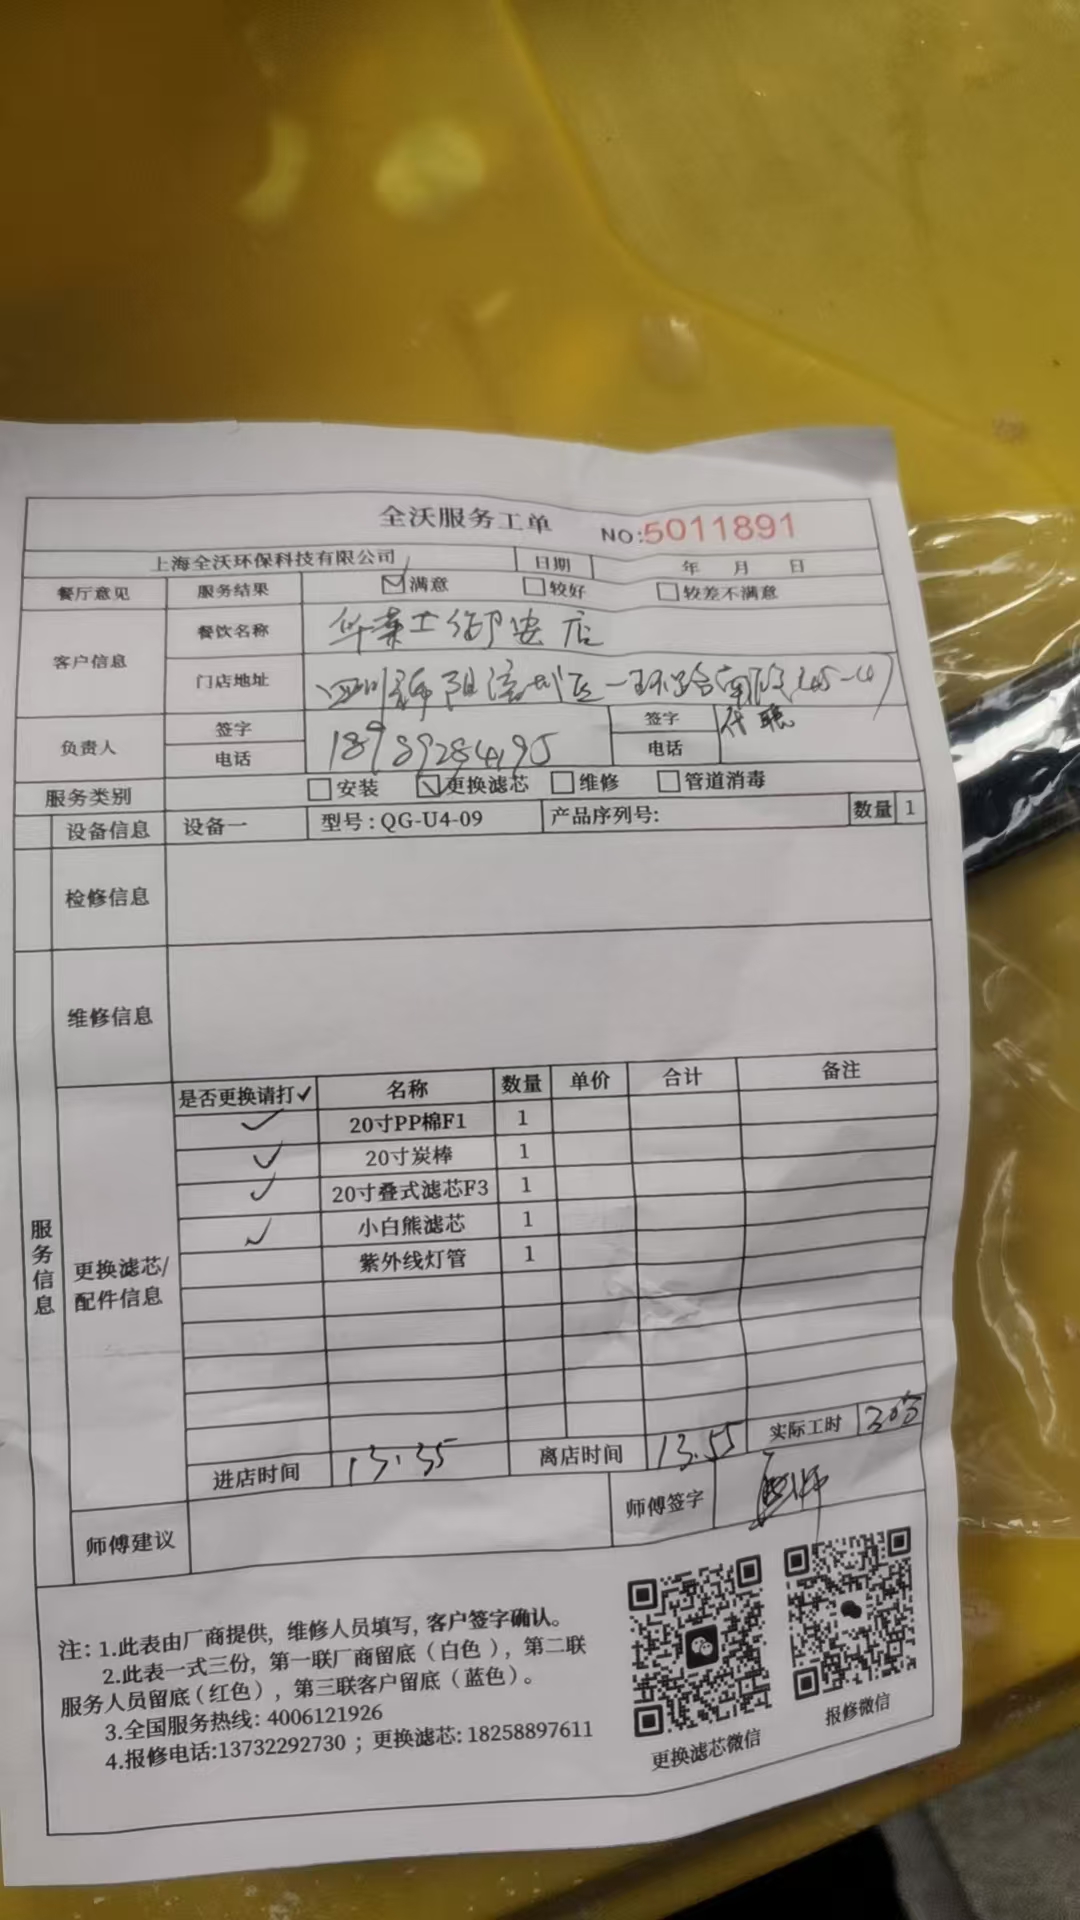 全沃服务工单 NO:5011891
上海全沃环保科技有限公司 日期 年 月 日
餐厅意见 服务结果 满意 较好 较差不满意
客户信息 餐饮名称 华莱士 店
门店地址 四川 阳 区一环路南段
负责人 签字 签字
电话 18989284195 电话
服务类别 安装 更换滤芯 维修 管道消毒
设备信息 设备一 型号:QG-U4-09 产品序列号: 数量 1
检修信息
维修信息
服务信息
更换滤芯/配件信息
是否更换请打✓ 名称 数量 单价 合计 备注
✓ 20寸PP棉F1 1
✓ 20寸炭棒 1
✓ 20寸叠式滤芯F3 1
✓ 小白熊滤芯 1
紫外线灯管 1
进店时间 13:35 离店时间 13:55 实际工时
师傅建议 师傅签字
注: 1.此表由厂商提供, 维修人员填写, 客户签字确认。
2.此表一式三份, 第一联厂商留底(白色), 第二联
服务人员留底(红色), 第三联客户留底(蓝色)。
3.全国服务热线: 4006121926
4.报修电话:13732292730 ; 更换滤芯: 18258897611
更换滤芯微信
报修微信